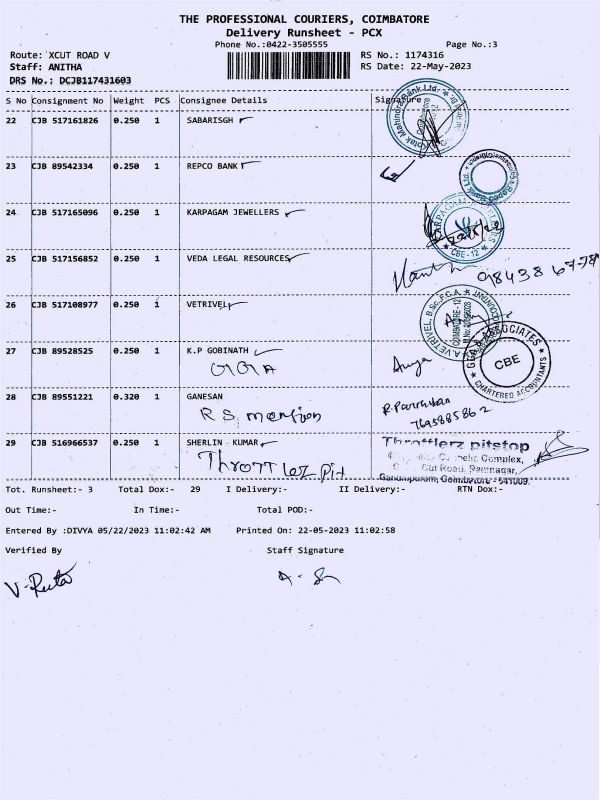 THE PROFESSIONAL COURIERS, COIMBATORE
Delivery Runsheet - PCX
Phone No.:0422-3505555 Page No.:3
Route: XCUT ROAD V RS No.: 1174316
Staff: ANITHA RS Date: 22-May-2023
DRS No.: DCJB117431603
S No Consignment No Weight PCS Consignee Details Signature
22 CJB 517161826 0.250 1 SABARISGH
23 CJB 89542334 0.250 1 REPCO BANK
24 CJB 517165096 0.250 1 KARPAGAM JEWELLERS
CBE - 12
25 CJB 517156852 0.250 1 VEDA LEGAL RESOURCES
26 CJB 517108977 0.250 1 VETRIVEL
A.VETRIVEL, B.Sc.,F.C.A.
COIMBATORE - 12
27 CJB 89528525 0.250 1 K.P GOBINATH
ASSOCIATES
CBE
CHARTERED ACCOUNTANTS
28 CJB 89551221 0.320 1 GANESAN
R S mention
29 CJB 516966537 0.250 1 SHERLIN - KUMAR
Throttlez pit
Throttlerz pitstop
Complex,
Cut Road, Ramnagar,
Gandhipuram, Coimbatore - 641009.
Tot. Runsheet:- 3 Total Dox:- 29 I Delivery:- II Delivery:- RTN Dox:-
Out Time:- In Time:- Total POD:-
Entered By :DIVYA 05/22/2023 11:02:42 AM Printed On: 22-05-2023 11:02:58
Verified By Staff Signature